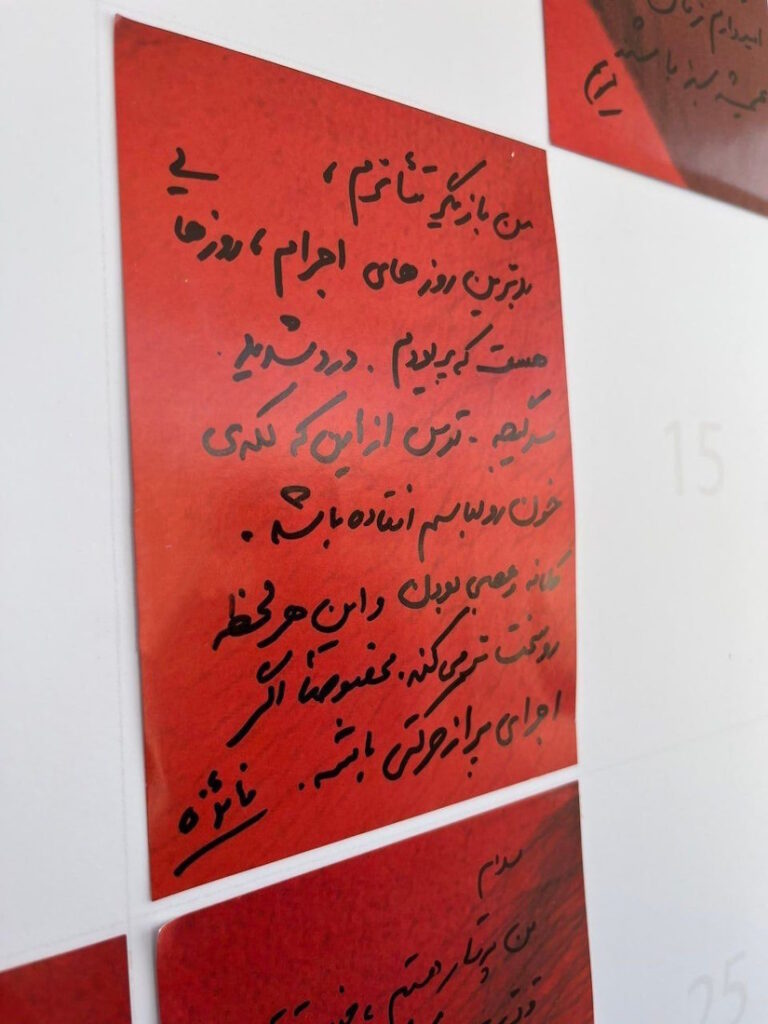 امیدوارم زنان
همیشه سبز باشند
من بازیگر تئاترم،
بدترین روزهای اجرام، روزهایی
هست که پریودم. درد شدید.
سرگیجه. ترس از این که لکه‌ی
خون رو لباسم افتاده باشه.
کلافه و عصبی بودن و این هر لحظه
رو سخت تر می کنه. مخصوصاً اگر
اجرای پر از حرکتی باشه. فائزه
15
سلام
من پرستار هستم،
25